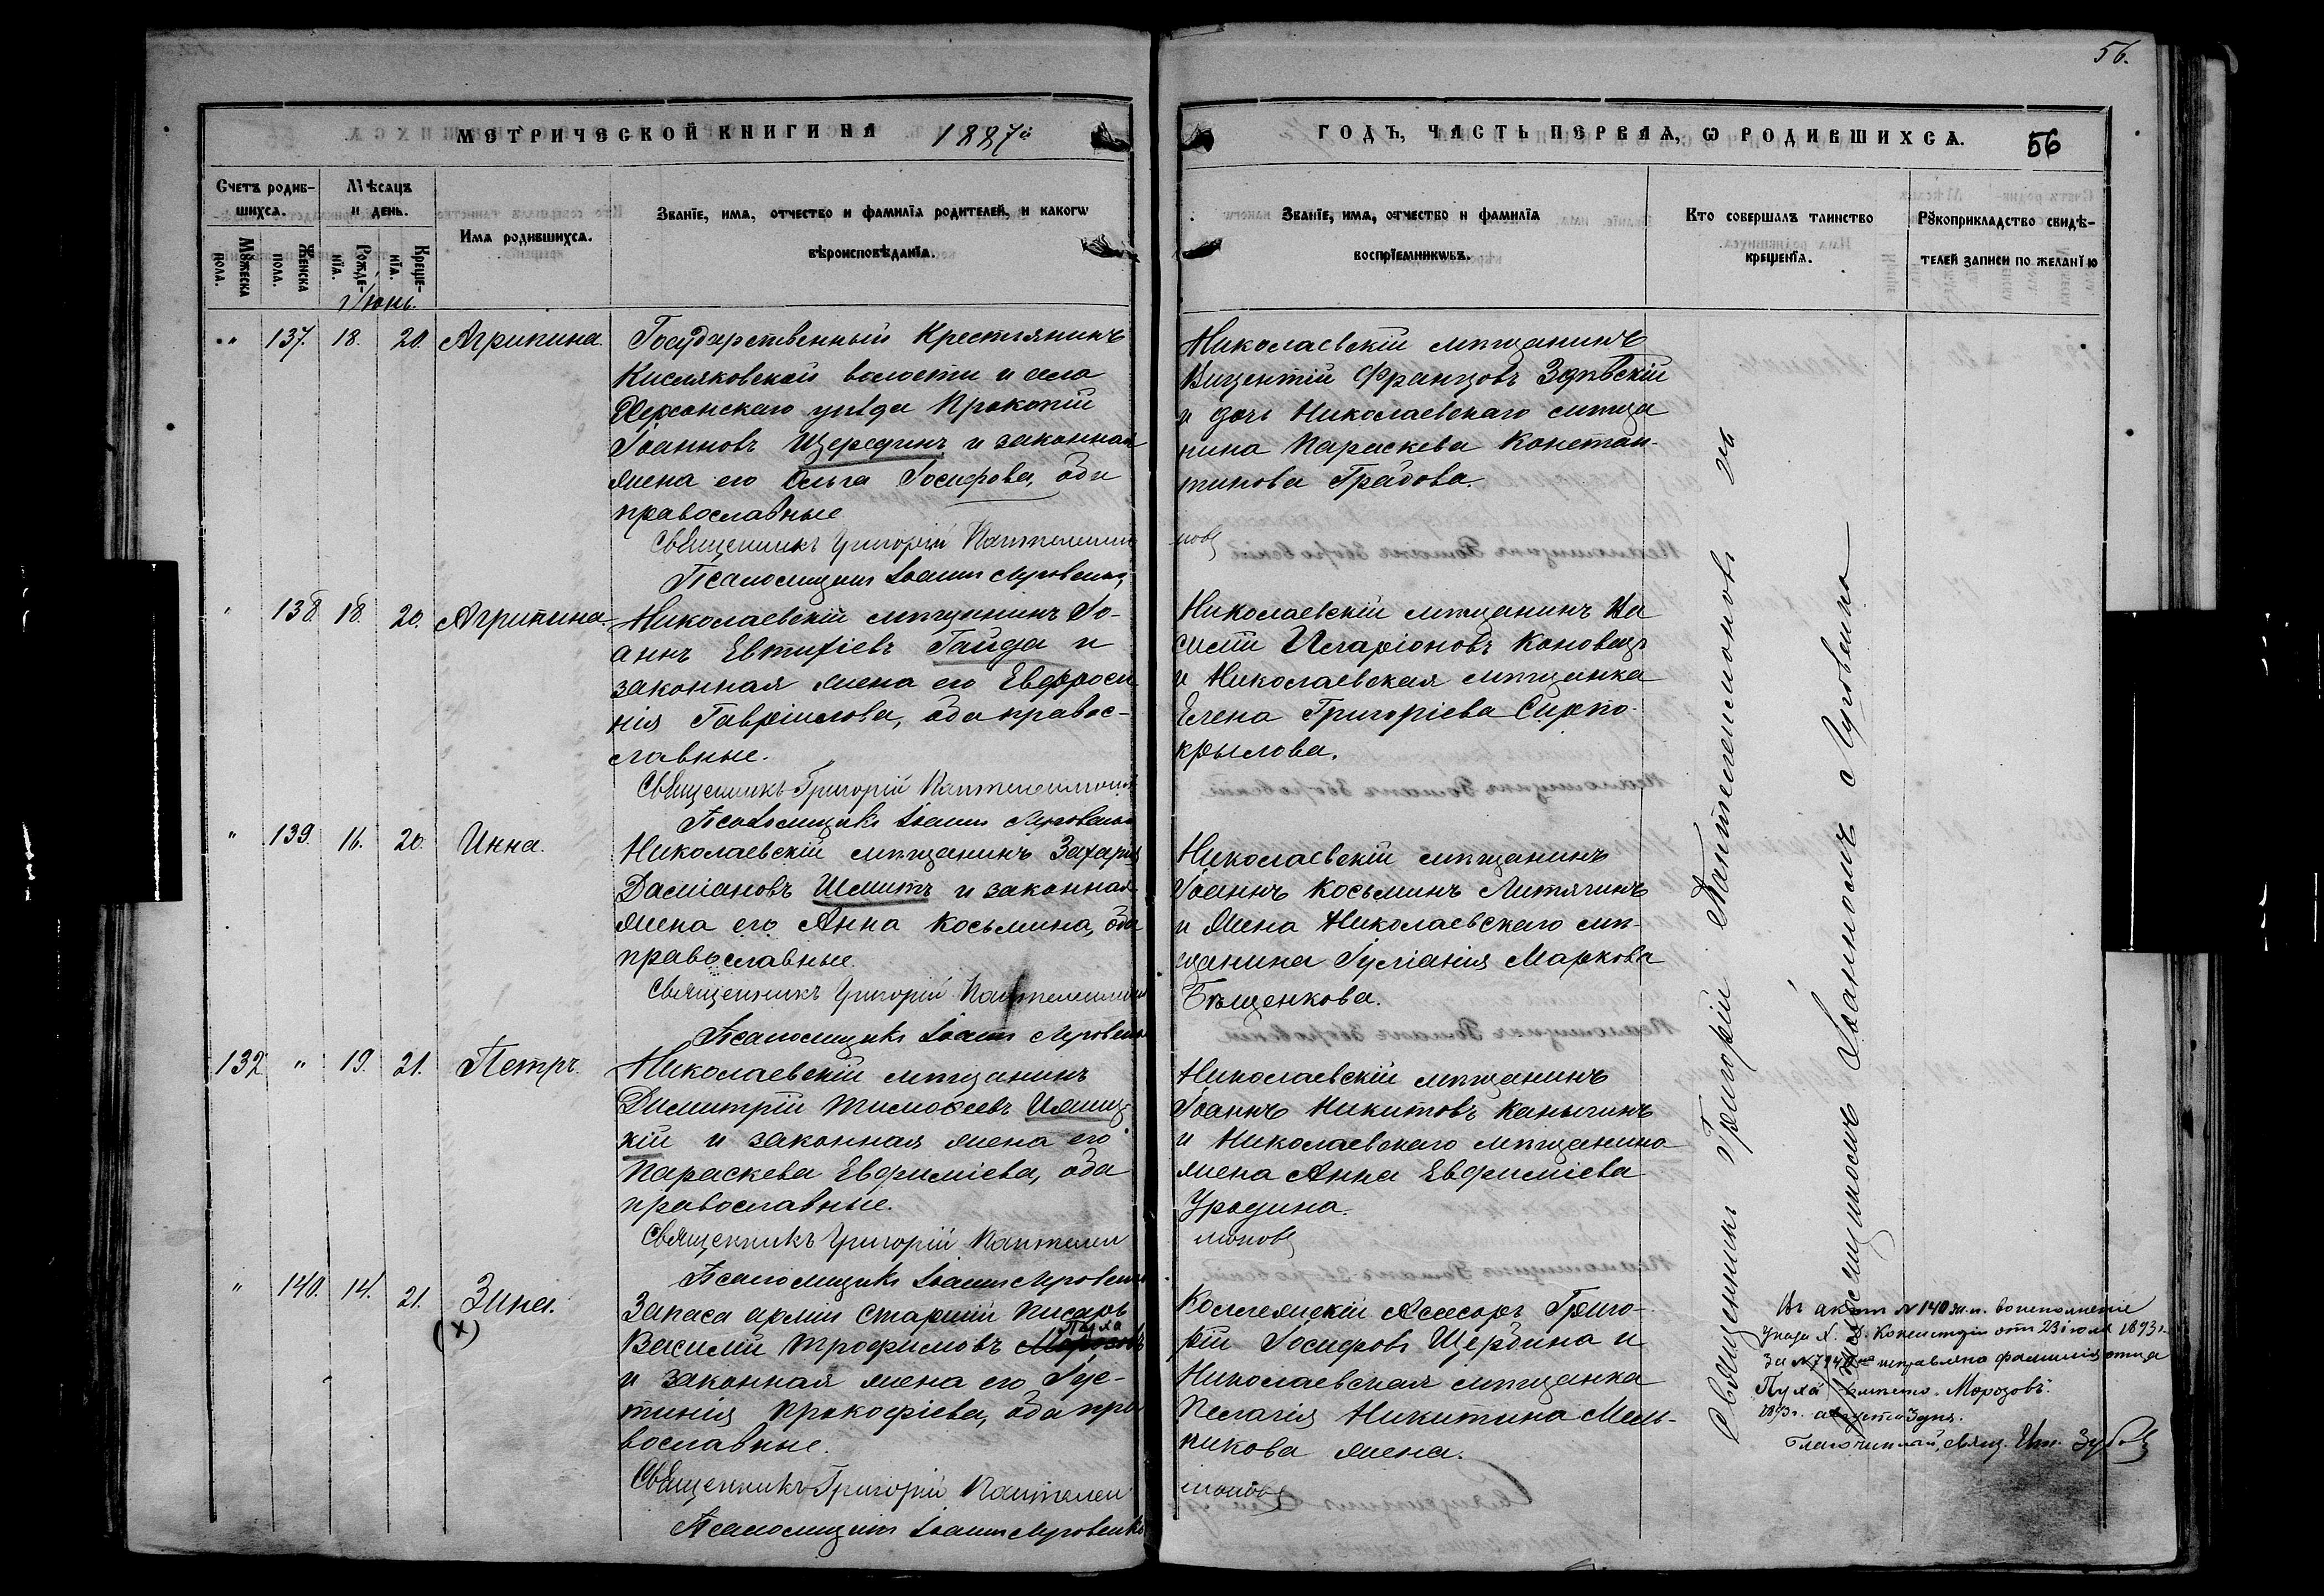 56.
МЕТРИЧЕСКОЙ КНИГИ НА 1887й
ГОДЪ, ЧАСТЬ ПЕРВАЯ, Ѡ РОДИВШИХСА. 56
Счетъ родив-
шихса.
Мѣсяцъ
и день.
Мꙋжеска пола.
Женска пола.
Рожде-
нїа.
Креще-
нїа.
Има родившихса.
Званїе, има, отчество и фамилїа родителей, и какогѡ
вѣроисповѣданїа.
Званїе, има, отчество и фамилїа
воспрїемникѡвъ.
Кто совершалъ таинство
крещенїа.
Рꙋкоприкладство свидѣ-
телей записи по желанїю
Іюнь.
" 137. 18. 20. Агрипина.
Государственный Крестьянинъ
Кисляковской волости и села
Херсонскаго уѣзда Прокопій
Іоанновъ Щерединъ и законная
жена его Ольга Іосифова, оба
православные
Священникъ Григорій Пантелеимо
новъ
Псаломщикъ Іоаннъ Луговенко
Николаевскій мѣщанинъ
Викентій Францовъ
и дочь Николаевскаго мѣща
нина Параскева Констан-
тинова Градова.
" 138. 18. 20. Агрипина.
Николаевскій мѣщанинъ Іо-
аннъ Евтихіевъ Гайда и
законная жена его Евфроси
нія Гавріилова, оба правос-
славные.
Священникъ Григорій Пантелеимоновъ
Псаломщикъ Іоаннъ Луговенко
Николаевскій мѣщанинъ Ва
силій Иларіоновъ Коновецъ
и Николаевская мѣщанка
Елена Григоріева Сиро-
крылова.
" 139. 16. 20. Инна.
Николаевскій мѣщанинъ Захарій
Даміановъ Шмитъ и законная
жена его Анна Косьмина, оба
православные
Священникъ Григорій Пантелеимонов
Псаломщикъ Іоаннъ Луговенко
Николаевскій мѣщанинъ
Іоаннъ Косьминъ Литягинъ
и жена Николаевскаго мѣ-
щанина Іуліанія Маркова
Бѣщенкова.
132 " 19. 21. Петръ.
Николаевскій мѣщанинъ
Димитрій Тимоѳеевъ
кій и законная жена его
Параскева Евфиміева, оба
православные.
Священникъ Григорій Пантелеи
моновъ
Псаломщикъ Іоаннъ Луговенко
Николаевскій мѣщанинъ
Іоаннъ Никитовъ Канычинъ
и Николаевскаго мѣщанина
жена Анна Евфиміева
Урядина.
" 140. 14. 21. Зина.
(х)
Запаса арміи старшій писарь
Василій Трофимовъ Морозовъ Пуха
и законная жена его Іус-
тинія Прокофіева, оба пра
вославные.
Священникъ Григорій Пантелеи
моновъ
Псаломщикъ Іоаннъ Луговенко
Коллежскій Асесоръ Григо-
рій Іосифовъ Щербина и
Николаевская мѣщанка
Пелагія Никитина Мель-
никова жена.
Священникъ Григорій Пантелеимоновъ съ
Псаломщикомъ Іоанномъ Луговенко
Въ актѣ № 140 ж.п. во исполненіе
Указа Х. Д. Консисторіи отъ 23 іюля 1893 г.
за № исправлена фамилія отца
"Пуха" вмѣсто "Морозовъ".
1893 г. августа 3 дня.
Благочинный, свящ.